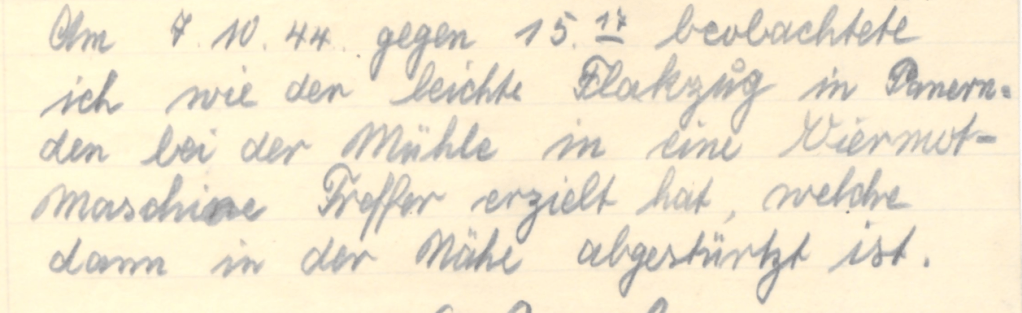 Am 7.10.44. gegen 15.17 beobachtete
ich wie der leichte Flakzug in Panern-
den bei der Mühle in eine Viermot-
Maschine Treffer erzielt hat, welche
dann in der Nähe abgestürtzt ist.